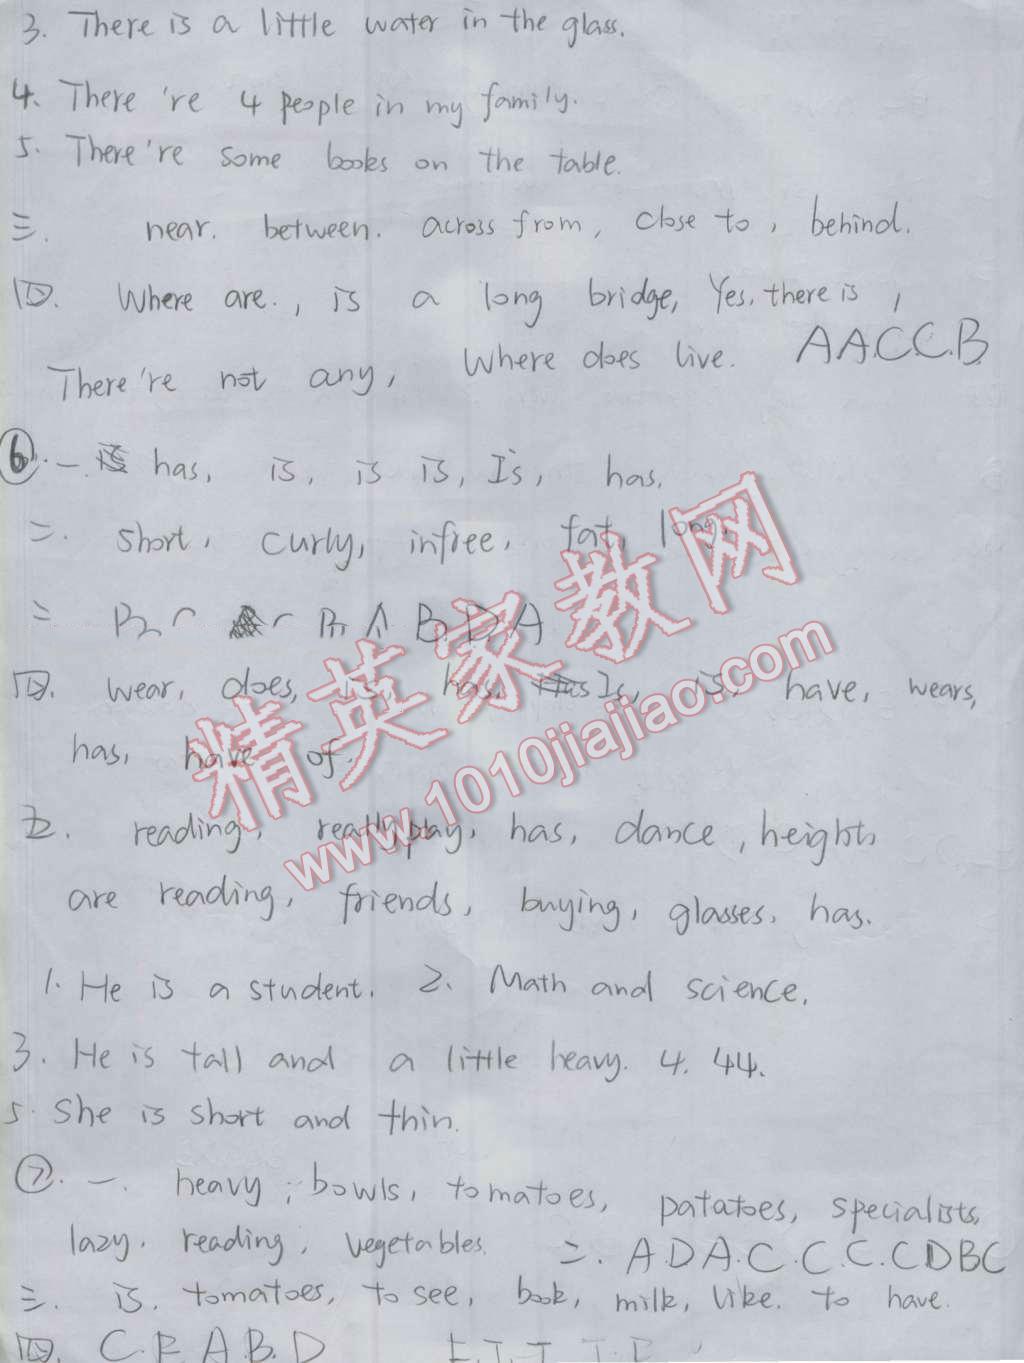 3. There is a little water in the glass.
4. There 're 4 people in my family.
5. There're some books on the table.
三. near. between. across from, close to, behind.
四. Where are., is a long bridge, Yes, there is,
There're not any, Where does live. AACCB
⑥. 一. has, is, is is, Is, has.
二. short, curly, infree, fat, long,
三 B B A B.D.A
四. wear, does, is, has, Is, is, have, wears,
has, have of.
五. reading, play, has, dance, height,
are reading, friends, buying, glasses, has.
1. He is a student. 2. Math and science.
3. He is tall and a little heavy. 4. 44.
5. She is short and thin.
⑦. 一. heavy, bowls, tomatoes, patatoes, specialists,
lazy. reading, vegetables. 二. A.D.A.C.C.C.CDBC
三. is. tomatoes, to see, book, milk, like. to have.
四. C.E.A.B.D
精英家教网
www.1010jiajiao.com